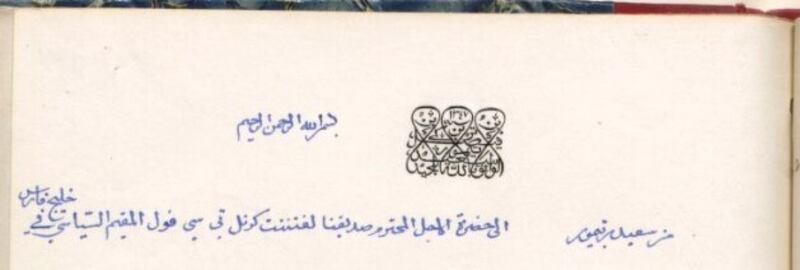 بسم الله الرحمن الرحيم
من سعيد بن تيمور
الى حضرة الاجل المحترم صديقنا لفتننت كرنل تي سي فول المقيم السياسي في
خليج فارس